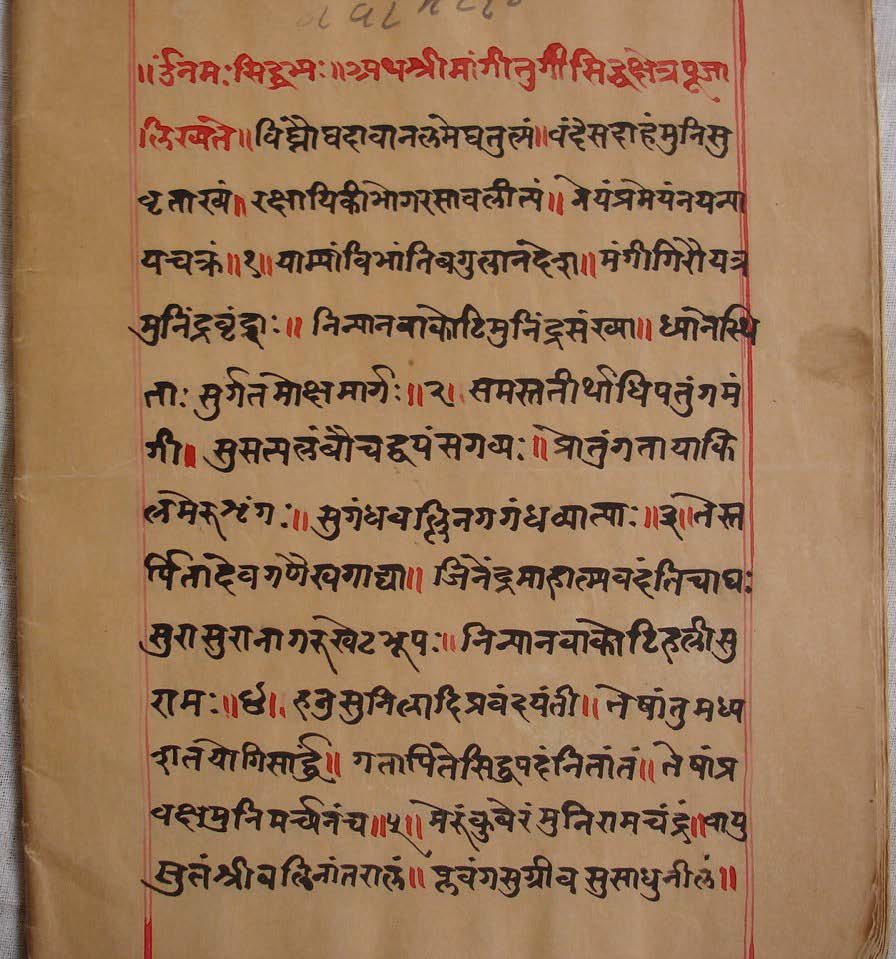 ॥र्उनमःसिद्धमः॥अथश्रीमांगीतुगीसिद्धक्षेत्रपूजा
लिख्यते॥विंघ्नौघदावानलमेघतुल्यं॥वंदेसदाहंमुनिसु
वृताख्यं॥रक्षायिकीभोगरसावलीत्यं॥ज्ञेयंप्रमेयंनयन्या
यचक्रं॥१॥याम्यांविभांतिबगुलानदेशे॥मंगीगिरौयत्र
मुनिंद्रवृंद्दाः॥निन्यानवाकोटिमुनिंद्रसंख्या॥ध्यानेस्थि
ताःसुर्गतमोक्षमार्गः॥२।समस्ततीर्थाधिपतुंगमं
गी॥सुसत्यलंबौचद्वपंसगव्यः॥प्रोतुंगतायाकि
लमेरुशृंगः॥सुगंधवल्लिनगगंधव्यात्याः॥३॥तेस्त
र्पितादेवगणैखगाद्या॥जिनेंद्रमाहात्मवदंतिचाघः
सुरासुरानागरुखेटभूपः॥निन्यानवाकोटिहलीसु
रामः॥४।हनुसुनिलादिप्रवंदयंती॥तेषांतुमध्य
शतयोगिसार्द्ध॥गतार्पितेसिद्धपदंनितांतं॥तेषांप्र
वक्षमुनिमर्च्यनंच॥५॥मेरुंकुबेरंमुनिरामचंद्रं॥वायु
सुतंश्रीवलिनांतरालं॥प्लवंगसुग्रीवसुसाधुनीलं॥